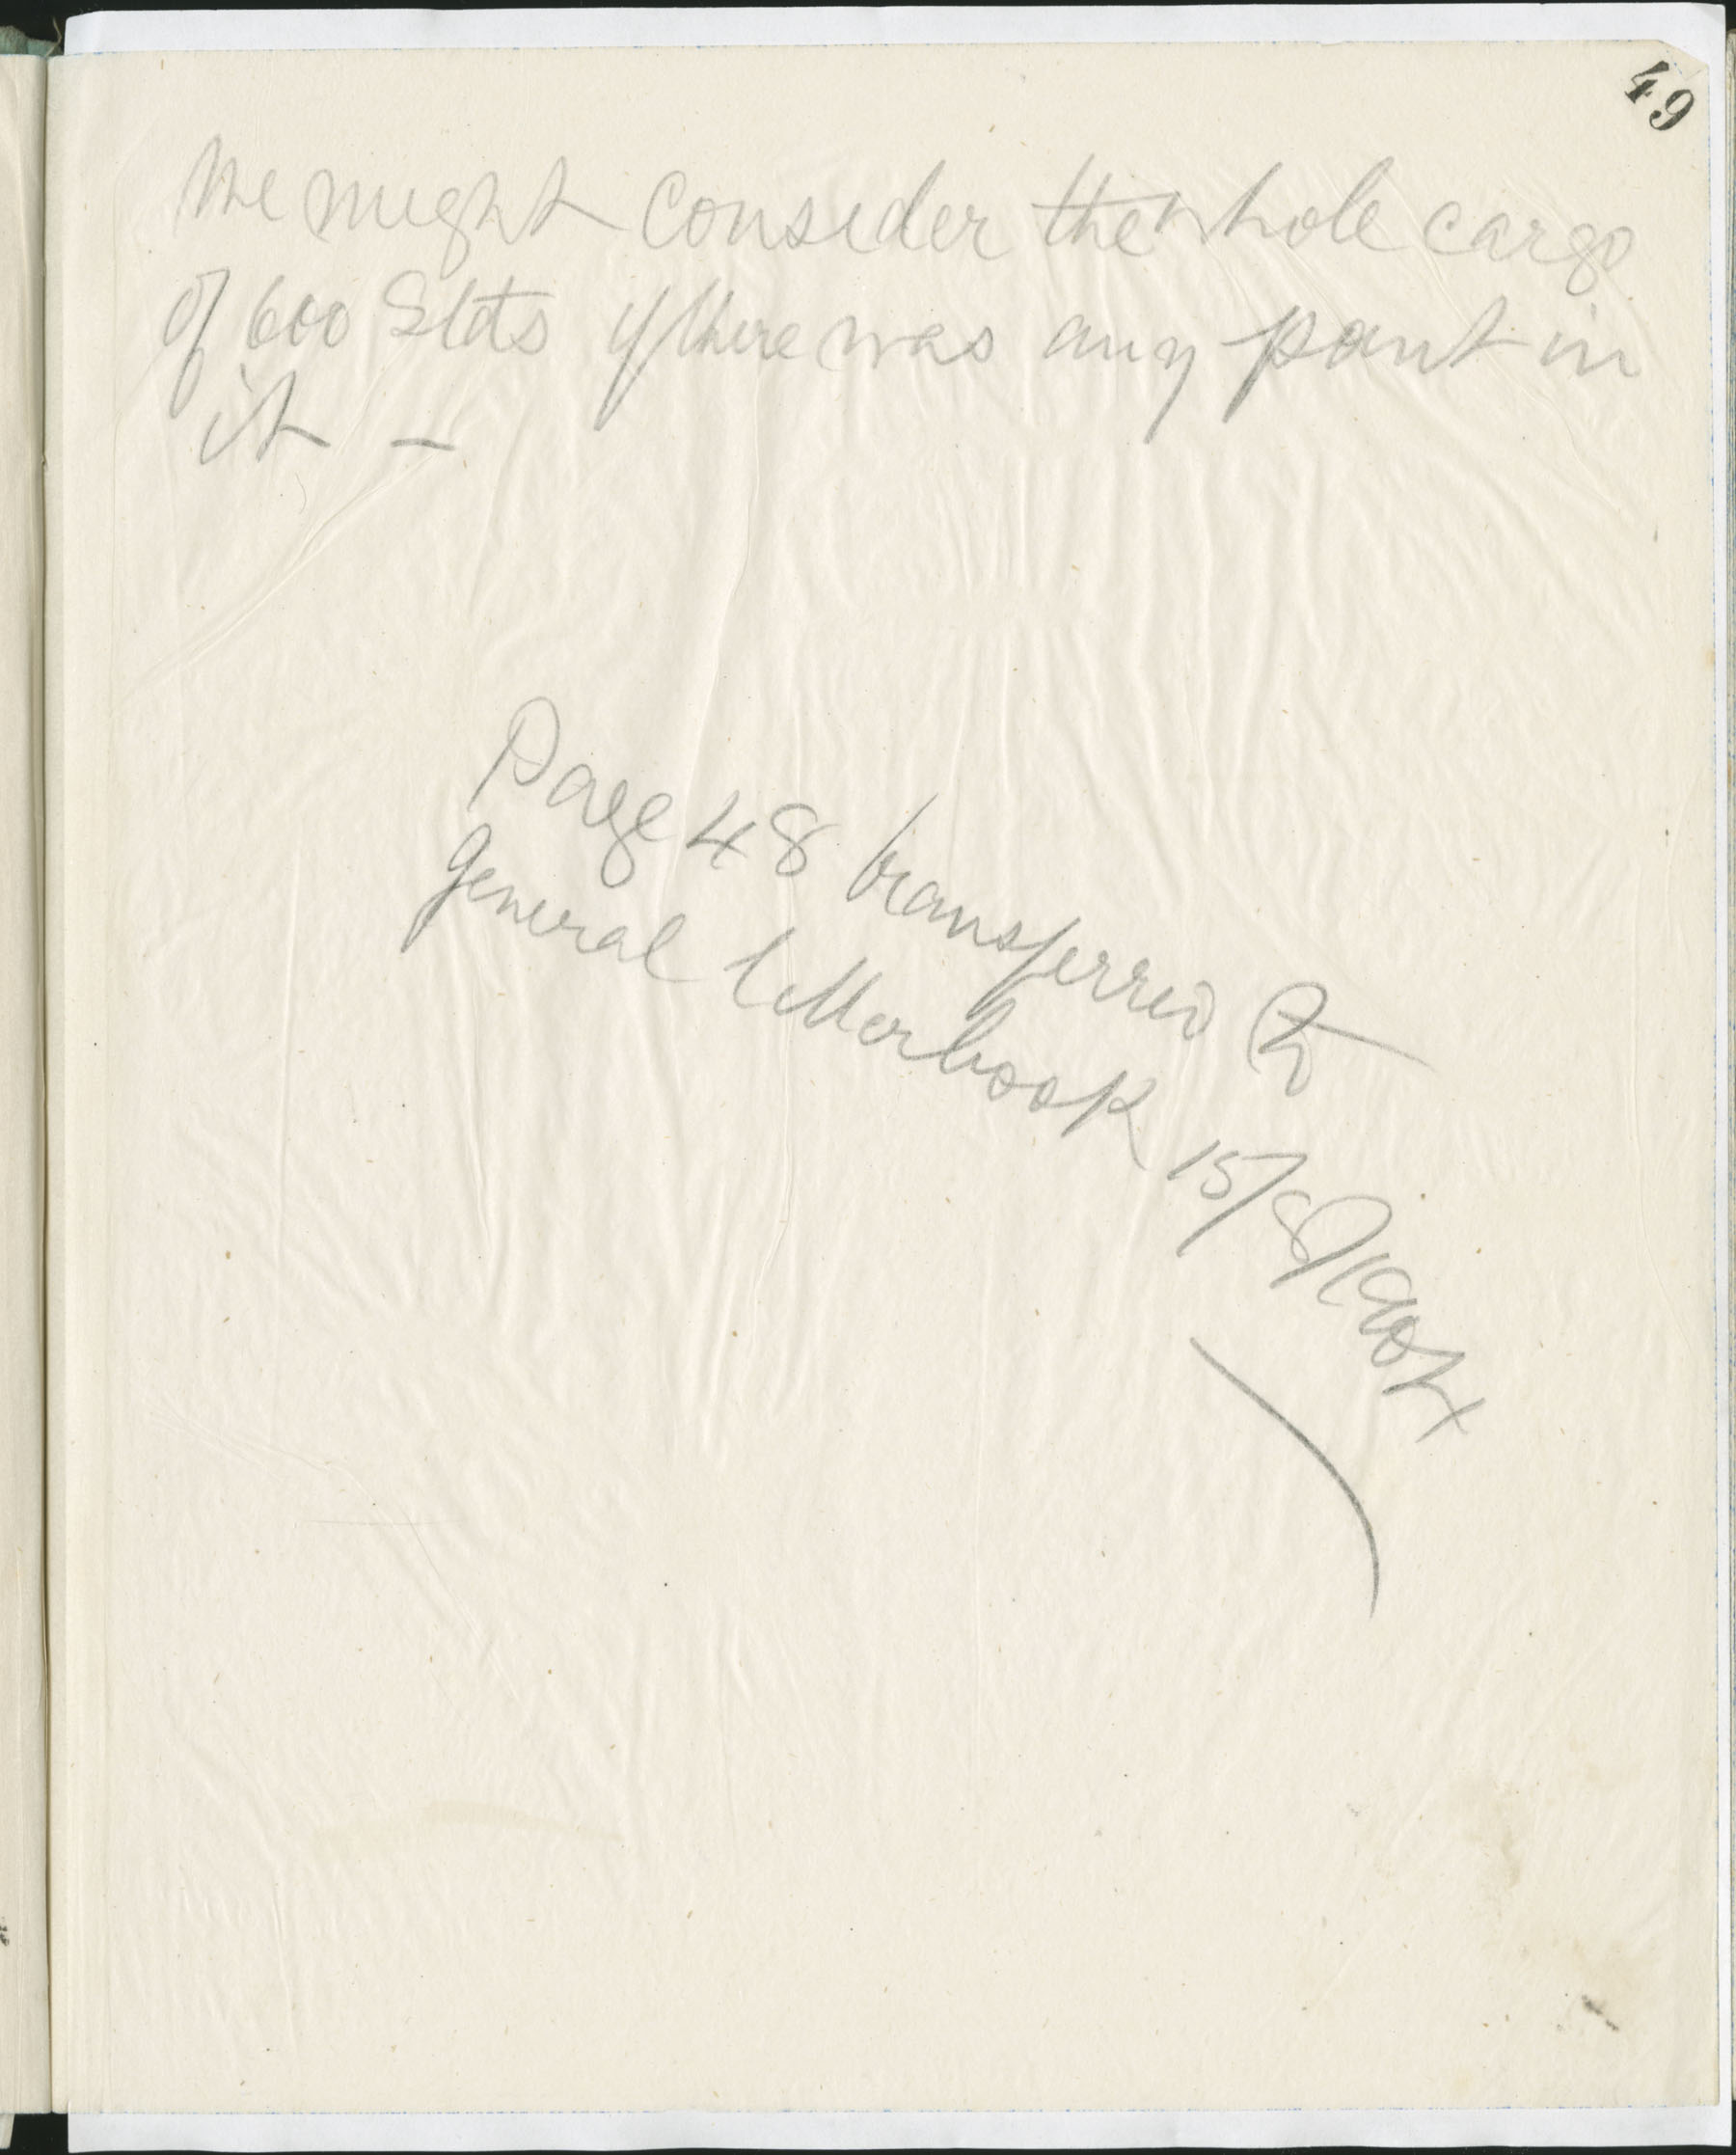 49
We might consider the whole cargo
of 600 Stds if there was any
in
it —
Page 48 transferred to
General letterbook 15/8/1904